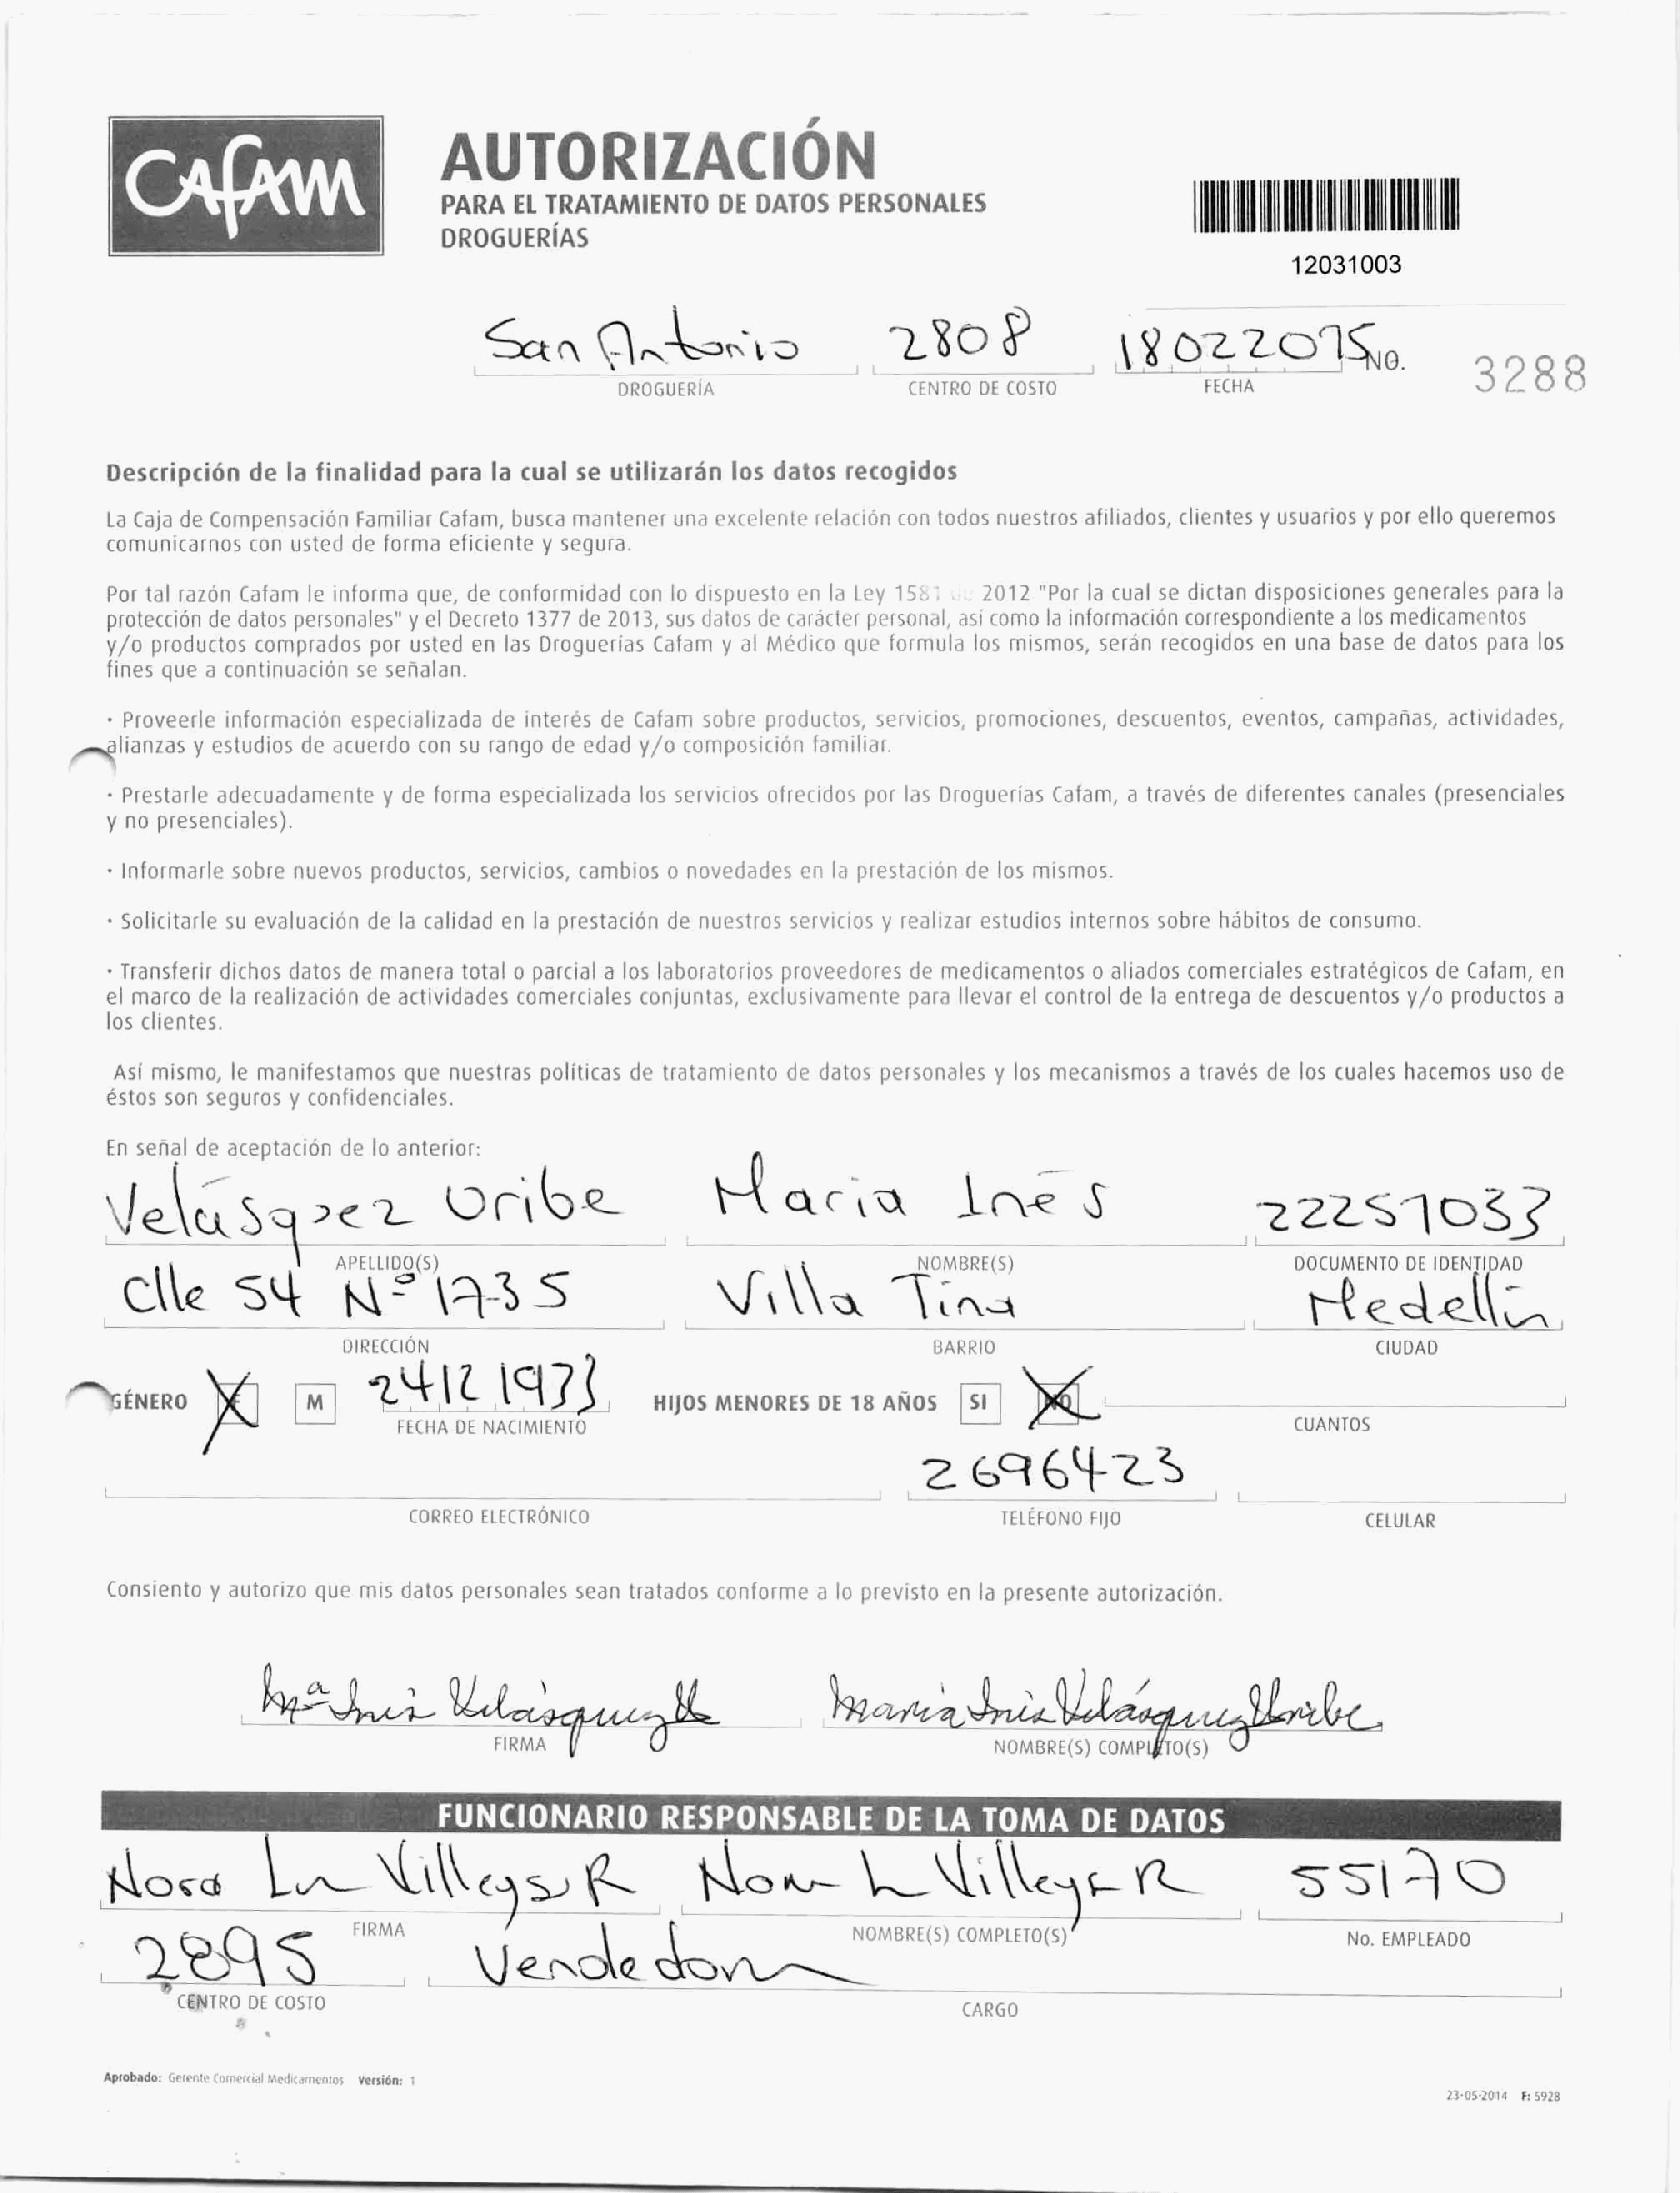 CAFAM
AUTORIZACIÓN
PARA EL TRATAMIENTO DE DATOS PERSONALES
DROGUERÍAS
12031003
San Antonio 2808 18022015 NO. 3288
DROGUERÍA CENTRO DE COSTO FECHA
Descripción de la finalidad para la cual se utilizarán los datos recogidos
La Caja de Compensación Familiar Cafam, busca mantener una excelente relación con todos nuestros afiliados, clientes y usuarios y por ello queremos
comunicarnos con usted de forma eficiente y segura.
Por tal razón Cafam le informa que, de conformidad con lo dispuesto en la Ley 1581 de 2012 "Por la cual se dictan disposiciones generales para la
protección de datos personales" y el Decreto 1377 de 2013, sus datos de carácter personal, así como la información correspondiente a los medicamentos
y/o productos comprados por usted en las Droguerías Cafam y al Médico que formula los mismos, serán recogidos en una base de datos para los
fines que a continuación se señalan.
· Proveerle información especializada de interés de Cafam sobre productos, servicios, promociones, descuentos, eventos, campañas, actividades,
alianzas y estudios de acuerdo con su rango de edad y/o composición familiar.
· Prestarle adecuadamente y de forma especializada los servicios ofrecidos por las Droguerías Cafam, a través de diferentes canales (presenciales
y no presenciales).
· Informarle sobre nuevos productos, servicios, cambios o novedades en la prestación de los mismos.
· Solicitarle su evaluación de la calidad en la prestación de nuestros servicios y realizar estudios internos sobre hábitos de consumo.
· Transferir dichos datos de manera total o parcial a los laboratorios proveedores de medicamentos o aliados comerciales estratégicos de Cafam, en
el marco de la realización de actividades comerciales conjuntas, exclusivamente para llevar el control de la entrega de descuentos y/o productos a
los clientes.
Así mismo, le manifestamos que nuestras políticas de tratamiento de datos personales y los mecanismos a través de los cuales hacemos uso de
éstos son seguros y confidenciales.
En señal de aceptación de lo anterior:
Velásquez Uribe Maria Inés 22251033
APELLIDO(S) NOMBRE(S) DOCUMENTO DE IDENTIDAD
Clle 54 Nº 17-35 Villa Tina Medellín
DIRECCIÓN BARRIO CIUDAD
GÉNERO M 24121933 HIJOS MENORES DE 18 AÑOS SI NO
FECHA DE NACIMIENTO CUANTOS
2696423
CORREO ELECTRÓNICO TELÉFONO FIJO CELULAR
Consiento y autorizo que mis datos personales sean tratados conforme a lo previsto en la presente autorización.
Mª Inés Velásquez Maria Inés Velásquez Uribe
FIRMA NOMBRE(S) COMPLETO(S)
FUNCIONARIO RESPONSABLE DE LA TOMA DE DATOS
Nora R R 55170
FIRMA NOMBRE(S) COMPLETO(S) No. EMPLEADO
2895 Vendedora
CENTRO DE COSTO CARGO
Aprobado: Gerente Comercial Medicamentos Versión: 1
23-05-2014 F: 5928